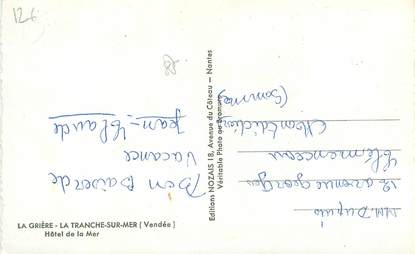 126
LA GRIÈRE - LA TRANCHE-SUR-MER (Vendée)
Hôtel de la Mer
Editions NOZAIS 18, Avenue du Côteau - Nantes
Véritable Photo au Bromure
Bon Baiser de
vacance
Jean-Claude
M.M. Dupuis
12 avenue george
Clémenceau
Montdidier
(Somme)